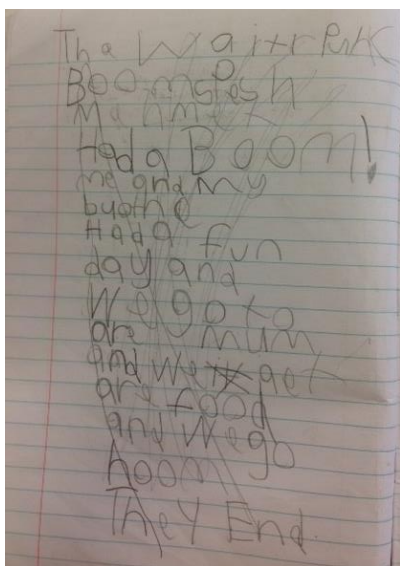 Tha Waitr Purk
Boomsplesh
Had a Boom!
me and my
Had a fun
day and
We go to
are mum
and we get
are food
and we go
hoom
They End